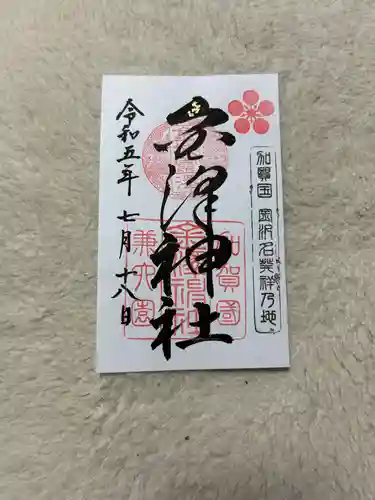 加賀国 金沢名発祥乃地
金澤神社
加賀國
兼六園
令和五年 七月 十八日